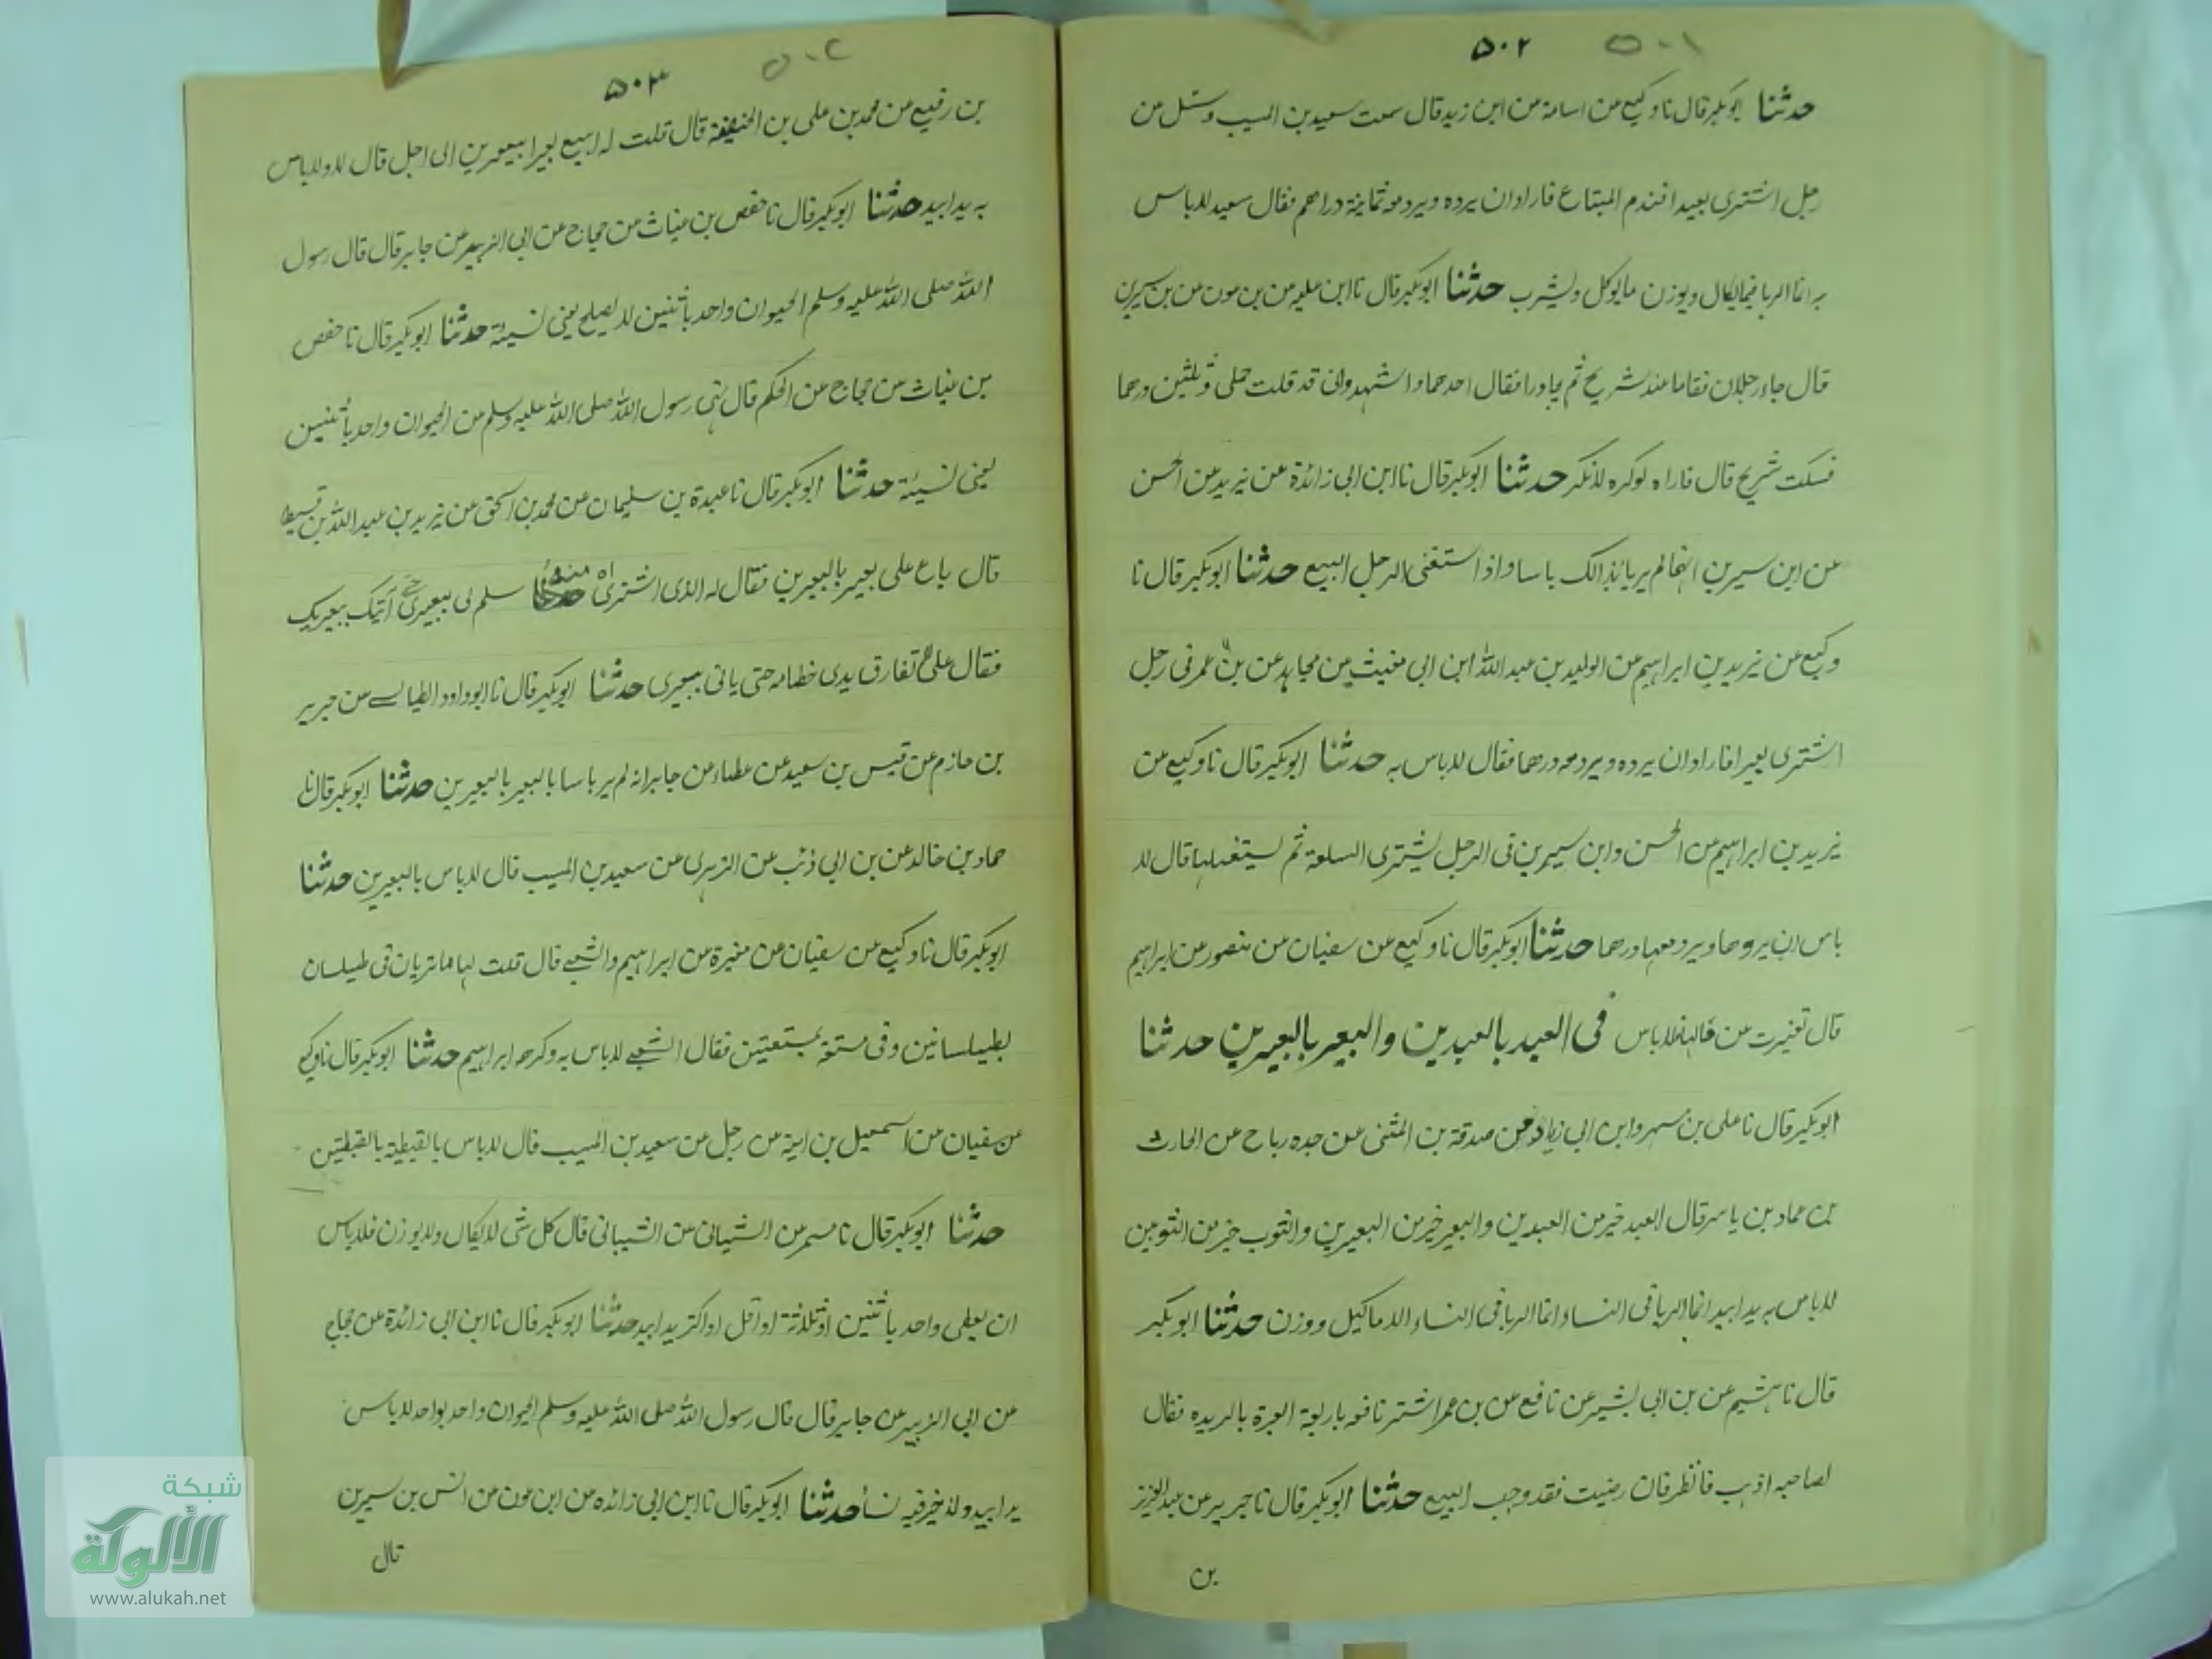 ٥٠٢ ٥٠١
حدثنا ابوبكر قال نا وكيع عن اسامة عن ابن زيد قال سمعت سعيد بن المسيب وسئل عن
رجل اشترى بعيرا فندم المبتاع فاراد ان يرده ويرد معه ثمانية دراهم فقال سعيد لاباس
به انما الربا فيما يكال ويوزن مما يوكل ويشرب حدثنا ابوبكر قال نا ابن عليه عن بن عون عن بن سيرين
قال جاء رجلان فقاما عند شريح ثم جاورا فقال احدهما اشهدوا انى قد قلت حملى وثلثين درهما
فسكت شريح قال فاراه لوكره لانكر حدثنا ابوبكر قال نا ابن ابى زائدة عن يزيد عن الحسن
عن ابن سيرين انهما لم يريا بذالك باسا واذا استغنى الرجل البيع حدثنا ابوبكر قال نا
وكيع عن يزيد بن ابراهيم عن الوليد بن عبد الله ابن ابى مغيث عن مجاهد عن بن عمر فى رجل
اشترى بعيرا فاراد ان يرده ويرد معه درهما فقال لاباس به حدثنا ابوبكر قال نا وكيع عن
يزيد بن ابراهيم عن الحسن وابن سيرين فى الرجل يشترى السلعة ثم يستغليها قال لا
باس ان يردها ويرد معها درهما حدثنا ابوبكر قال نا وكيع عن سفيان عن منصور عن ابراهيم
قال تغيرت عن حالها فلاباس فى العبد بالعبدين والبعير بالبعيرين حدثنا
ابوبكر قال نا على بن مسهر وابن ابى زياد عن صدقة بن المثنى عن جده رباح عن الحارث
عن عماد بن ياسر قال العبد خير من العبدين والبعير خير من البعيرين والثوب خير من الثوبين
لاباس به يدا بيد انما الربا فى النساء وانما الربا فى النساء الا ماكيل ووزن حدثنا ابوبكر
قال نا هشيم عن بن ابى بشير عن نافع عن بن عمر اشتر ناقه باربعة ابعرة بالربده فقال
لصاحبه اذهب فانظر فان رضيت فقد وجب البيع حدثنا ابوبكر قال نا جرير عن عبد العزيز
بن
٥٠٣ ٥٠٢
بن رفيع عن محمد بن على بن الحنفية قال قلت له ابيع بعيرا ببعيرين الى اجل قال لا ولاباس
به يدا بيد حدثنا ابوبكر قال نا حفص بن غياث عن حجاج عن ابى الزبير عن جابر قال قال رسول
الله صلى الله عليه وسلم الحيوان واحد باثنين لا يصلح يعنى نسيئة حدثنا ابوبكر قال نا حفص
بن غياث عن حجاج عن الحكم قال نهى رسول الله صلى الله عليه وسلم عن الحيوان واحد باثنين
يعنى نسيئة حدثنا ابوبكر قال نا عبدة بن سليمان عن محمد بن اسحق عن يزيد بن عبد الله بن قسيط
قال باع على بعير بالبعيرين فقال له الذى اشتراه منه سلم لى بعيرى حتى آتيك ببعيريك
فقال على لا تفارق يدى خطامه حتى ياتى ببعيرى حدثنا ابوبكر قال نا ابوداود الطيالسے عن جرير
بن حازم عن قيس بن سعيد عن عطاء عن جابر انه لم ير باسا بالبعير بالبعيرين حدثنا ابوبكر قال نا
حماد بن خالد عن بن ابى ذئب عن الزهرى عن سعيد بن المسيب قال لاباس بالبعيرين حدثنا
ابوبكر قال نا وكيع عن سفيان عن مغيرة عن ابراهيم والشعبے قال قلت لهما ما تريان فى طيلسان
بطيلسانين وفى مستعة بمستعتين فقال الشعبے لاباس به وكرهه ابراهيم حدثنا ابوبكر قال نا وكيع
عن سفيان عن اسمعيل بن امية عن رجل عن سعيد بن المسيب قال لاباس بالقبطية بالقبطيتين
حدثنا ابوبكر قال نا مسهر عن الشيبانى عن الشيبانى قال كل شى لا يكال ولا يوزن فلاباس
ان يعطى واحد باثنين اوثلاثة او اقل او اكثر يدا بيد حدثنا ابوبكر قال نا ابن ابى زائدة عن حجاج
عن ابى الزبير عن جابر قال قال رسول الله صلى الله عليه وسلم الحيوان واحد بواحد لاباس
يدا بيد ولا خير فيه نسأ حدثنا ابوبكر قال نا ابن ابى زائده عن ابن عون عن انس بن سيرين
قال
شبكة
الألوكة
www.alukah.net